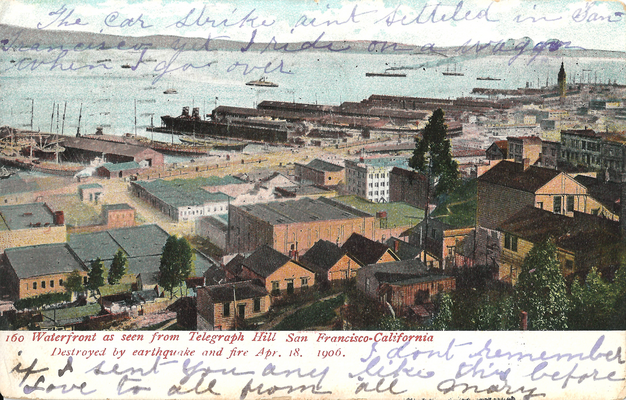 The car strike aint settled in San
Francisco yet I ride on a waggo
when I go over
160 Waterfront as seen from Telegraph Hill San Francisco-California
Destroyed by earthquake and fire Apr. 18. 1906.
I dont remember
if I sent you any like this before
Love to all from all Mary